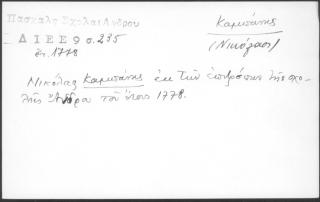 Πασχάλη Σχολαί Άνδρου
Δ Ι Ε Ε 9 σ. 235
ἔτ. 1778
Καμπάνης
(Νικόλαος)
Νικόλας Καμπάνης ἐκ τῶν ἐπιτρόπων τῆς σχο-
λῆς Ἄνδρου τοῦ ἔτους 1778.